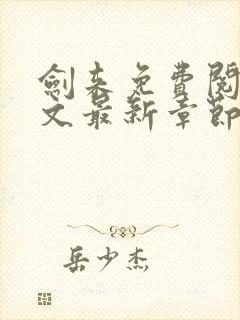 劍來免費閱
文最新章節
岳少杰